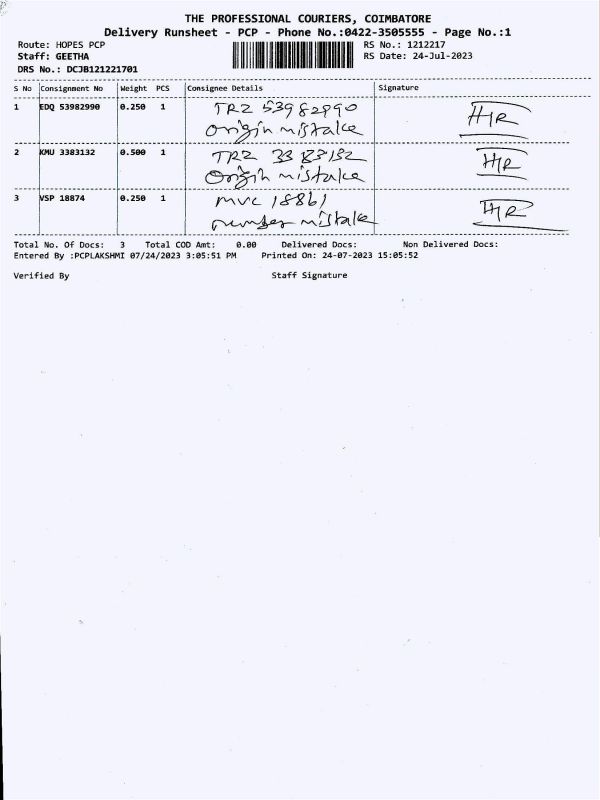 THE PROFESSIONAL COURIERS, COIMBATORE
Delivery Runsheet - PCP - Phone No.:0422-3505555 - Page No.:1
Route: HOPES PCP RS No.: 1212217
Staff: GEETHA RS Date: 24-Jul-2023
DRS No.: DCJB121221701
S No Consignment No Weight PCS Consignee Details Signature
1 EDQ 53982990 0.250 1 TRZ 53982990 H/R
origin mistake
2 KMU 3383132 0.500 1 TRZ 3383132 H/R
Origin mistake
3 VSP 18874 0.250 1 mvc 18861 H/R
number mistake
Total No. Of Docs: 3 Total COD Amt: 0.00 Delivered Docs: Non Delivered Docs:
Entered By :PCPLAKSHMI 07/24/2023 3:05:51 PM Printed On: 24-07-2023 15:05:52
Verified By Staff Signature